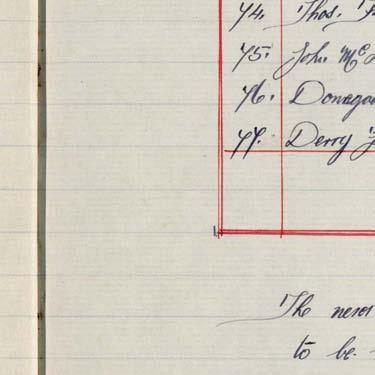 74. Thos.
75. John Mc
76. Donega
77. Derry
The
to be